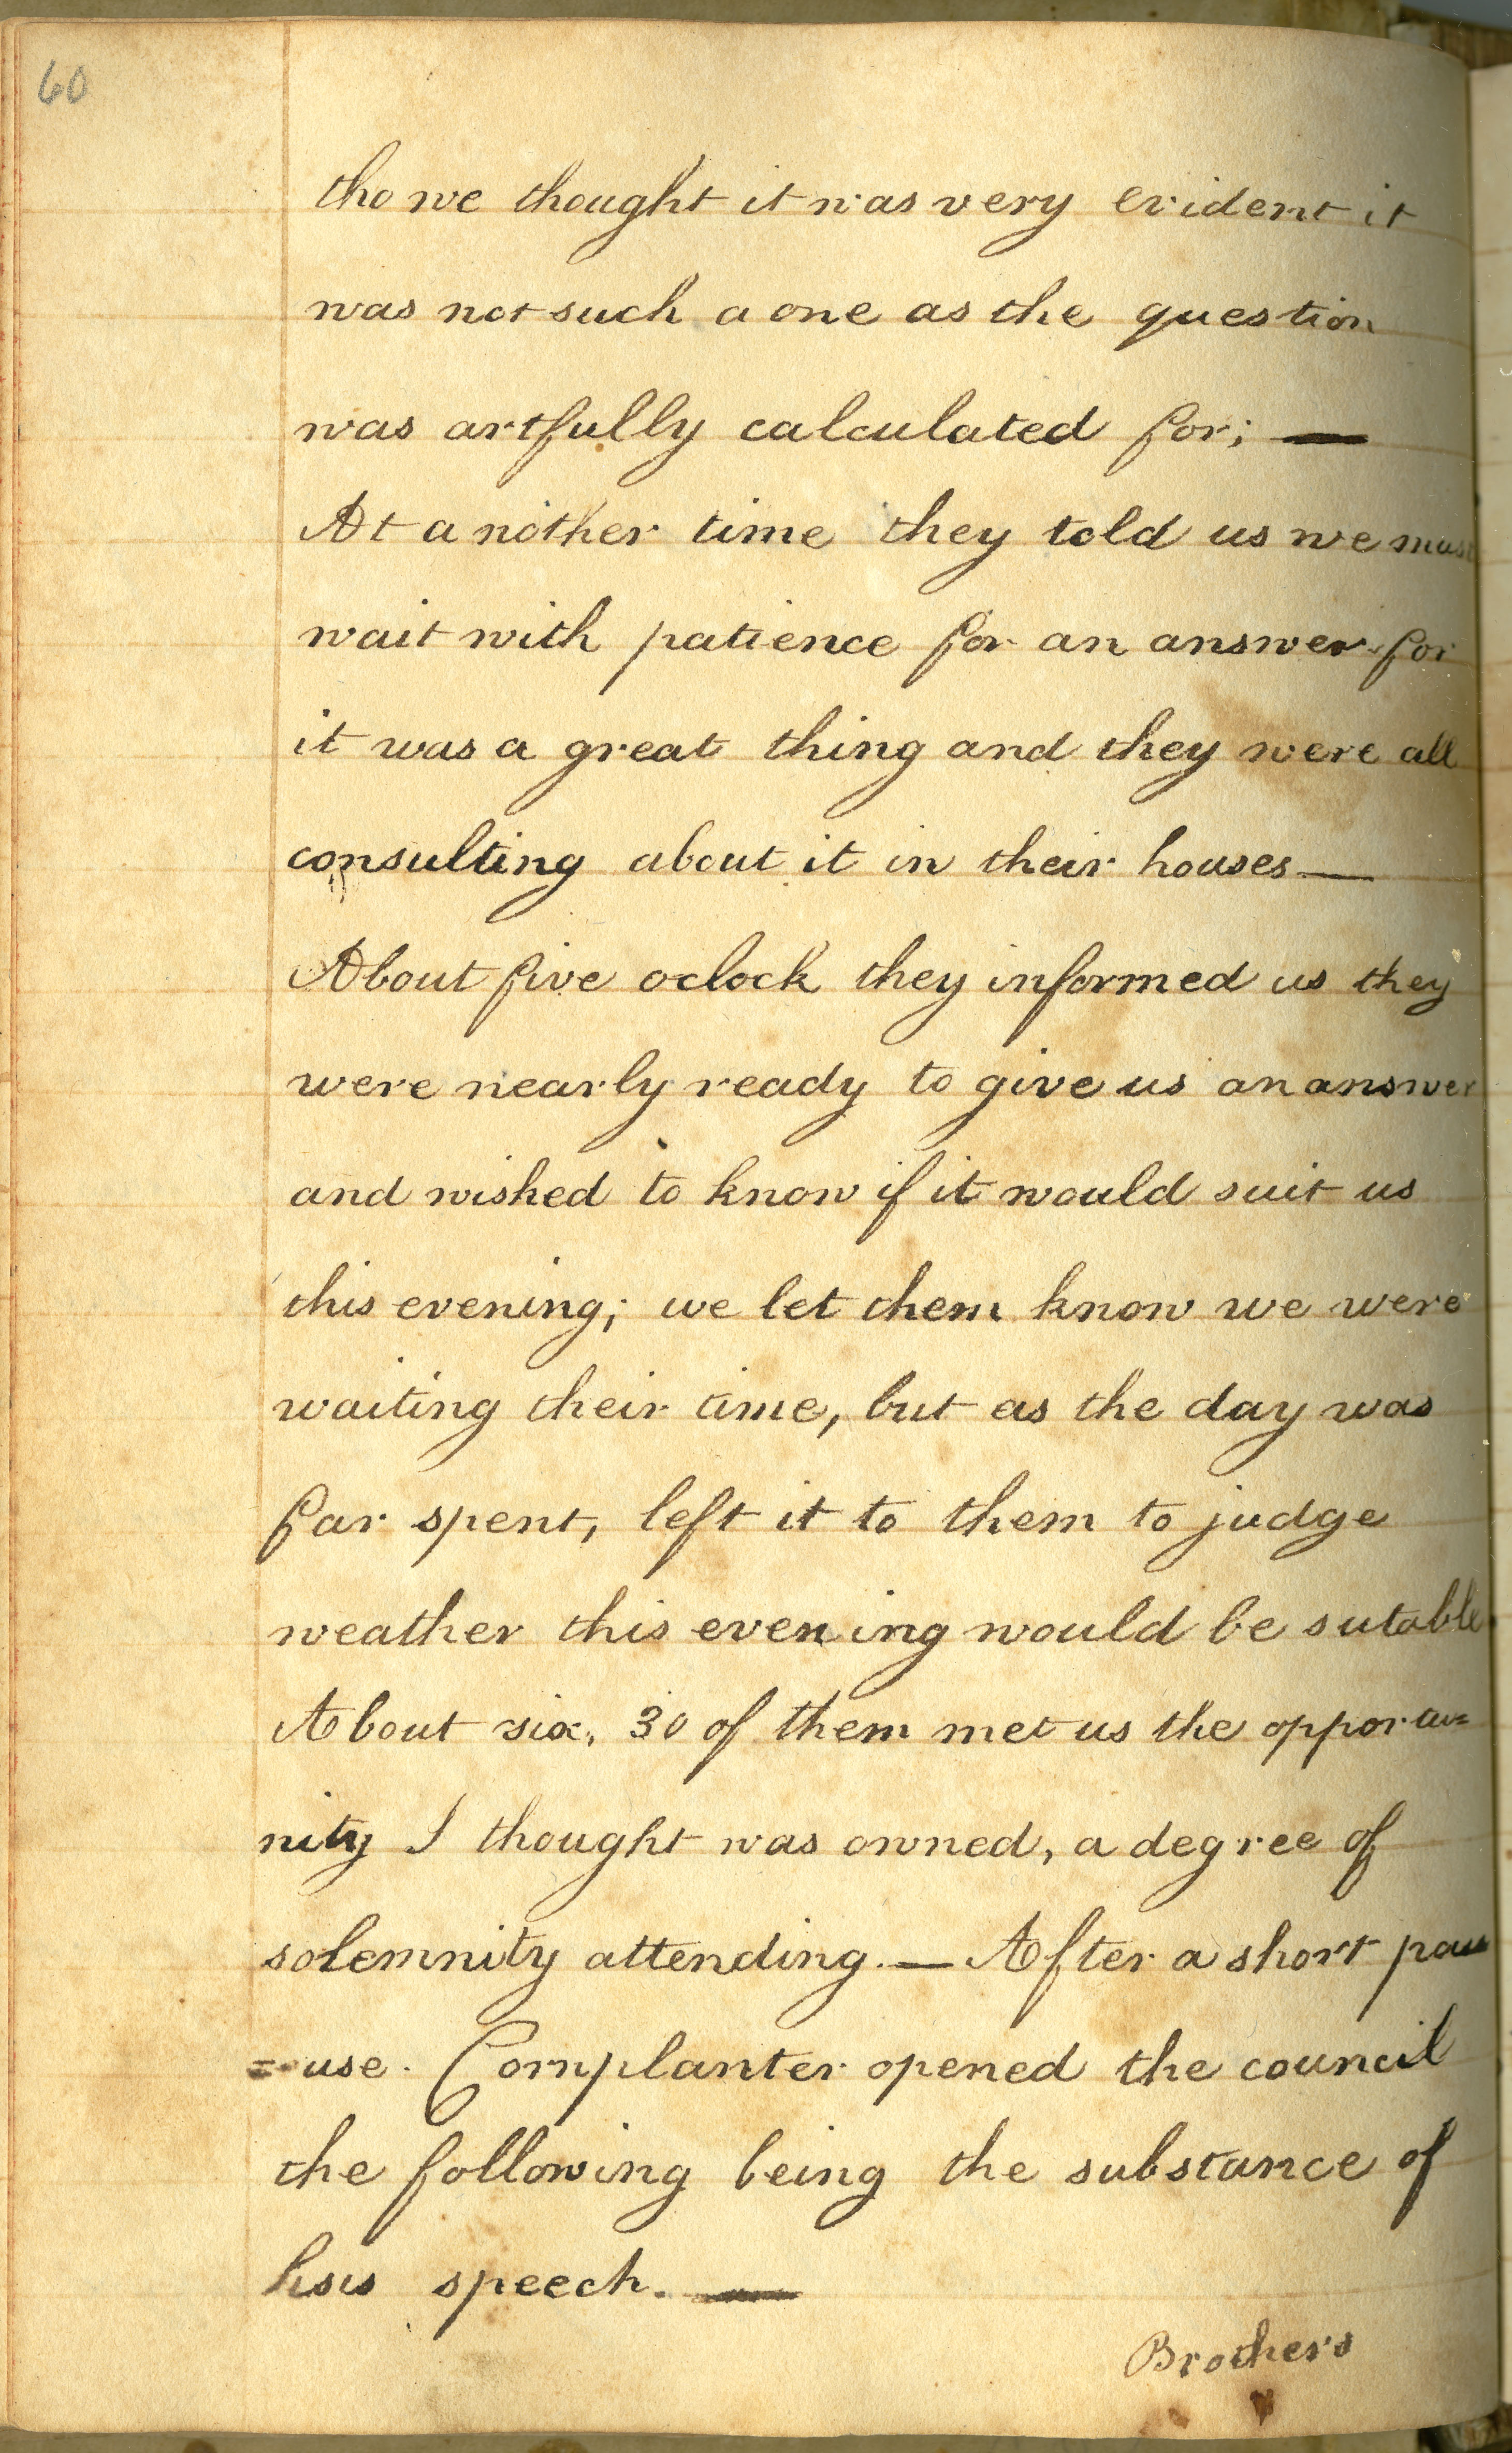 60
tho we thought it was very evident it
was not such a one as the question
was artfully calculated for; —
At a nother time they told us we must
wait with patience for an answer for
it was a great thing and they were all
consulting about it in their houses —
About five oclock they informed us they
were nearly ready to give us an answer
and wished to know if it would suit us
this evening; we let them know we were
waiting their time, but as the day was
far spent, left it to them to judge
weather this evening would be sutable
About six, 30 of them met us the opportu=
nity I thought was owned, a degree of
solemnity attending. — After a short pau
=use. Cornplanter opened the council
the following being the substance of
his speech. —
Brothers